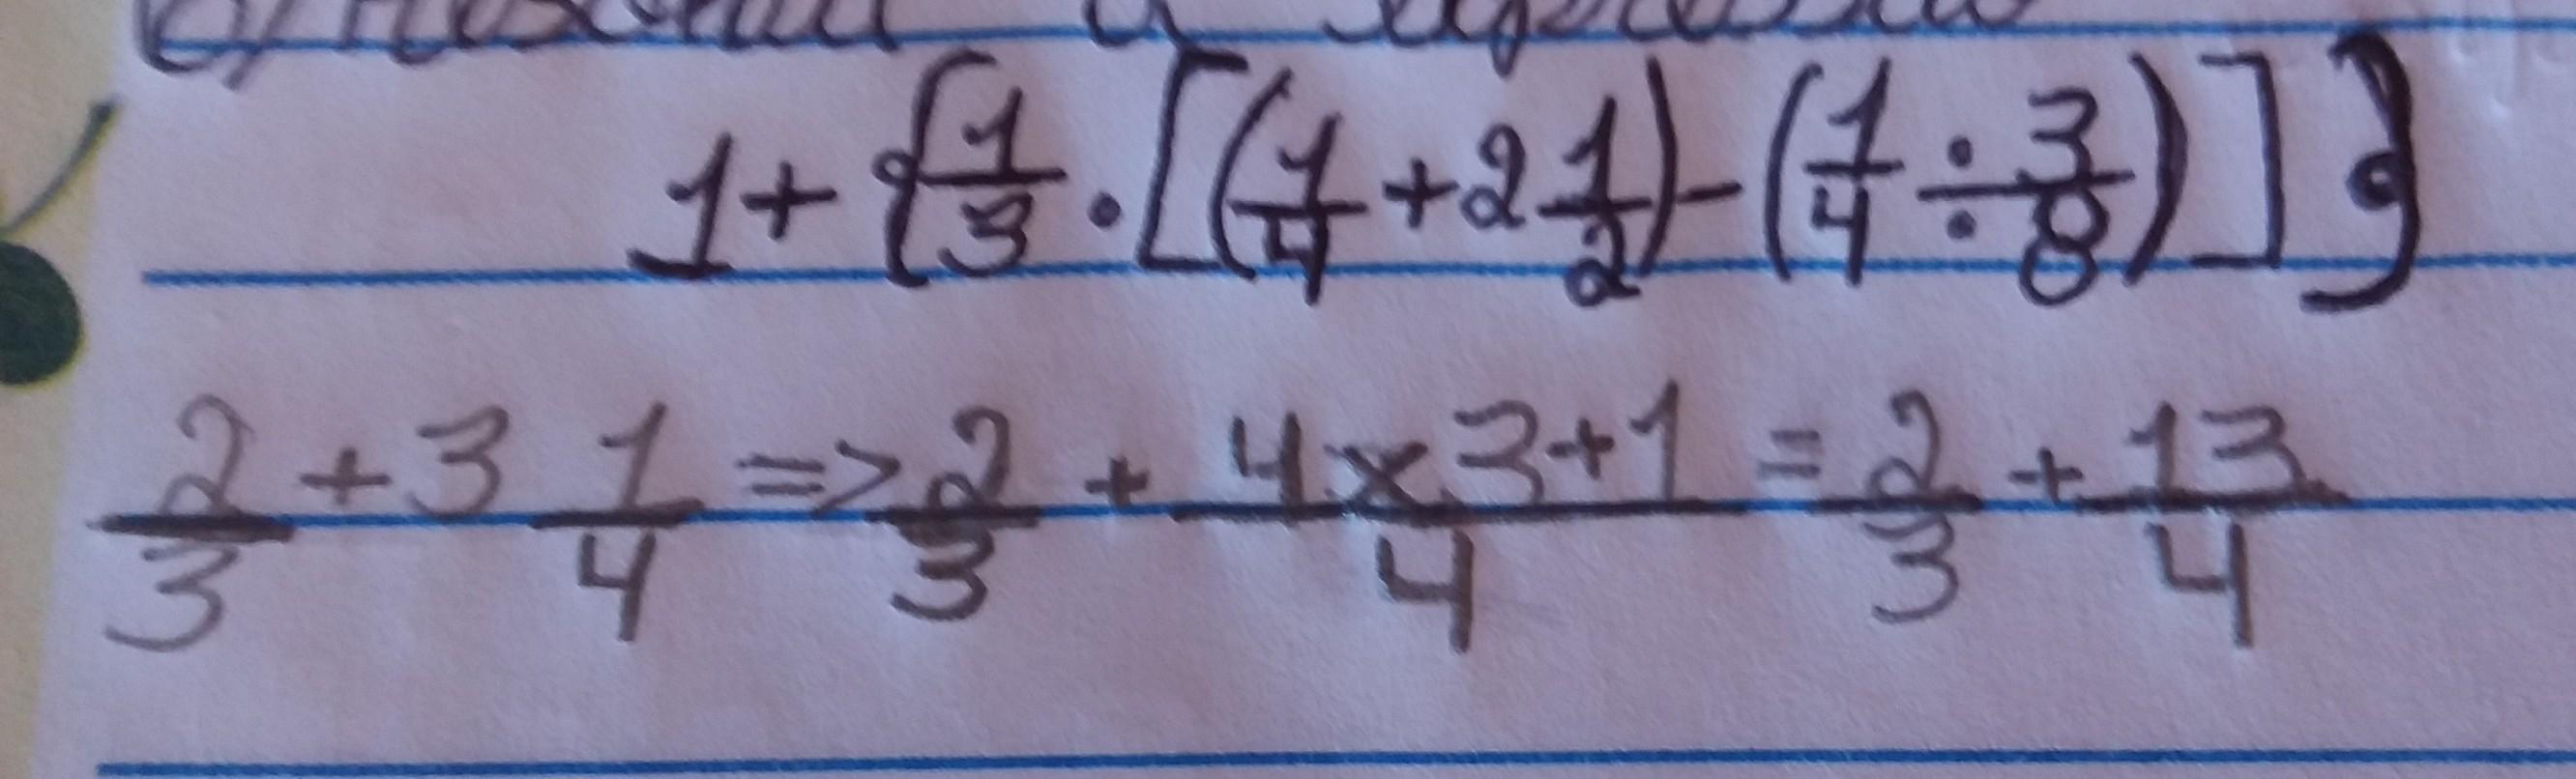 1 + { 1/3 · [ ( 1/4 + 2 1/2 ) - ( 1/4 ÷ 3/8 ) ] }
2/3 + 3 1/4 => 2/3 + 4 x 3 + 1/4 = 2/3 + 13/4